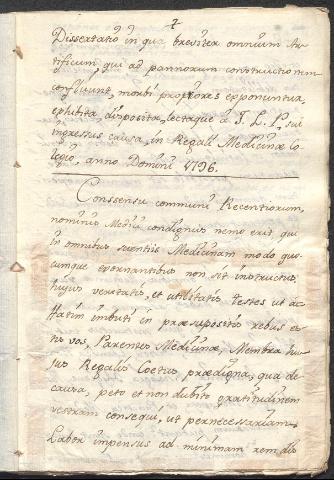 1
Dissertatio in qua breviter omnium Ar-
tificum, qui ad pannorum constructionem
confluunt, morbi propriores exponuntur,
exhibita disposita, lectaque à J. L. P. sui
ingressus causa, in Regali Medicinæ Co-
legio, anno Domini 1796.
Conssensu communi Recentiorum,
nominis Medici condignus nemo erit, qui
in omnibus scientiis Medicinam modo quo-
cumque exornantibus non sit instructus,
hujus veritatis, et utilitatis testes ut ac
fatim imbuti in præsuppositis rebus es-
tis vos, Parentes Medicinæ, Membra hu-
jus Regalis Coetus prædigna, qua de
causa, peto et non dubito gratitudinem
vestram consequi, ut pernecessariam
Labor impensus ad minimam rem